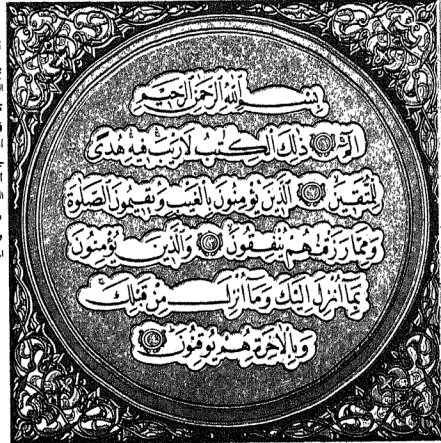 بِسْمِ اللَّهِ الرَّحْمَٰنِ الرَّحِيمِ
الٓمٓ ١ ذَٰلِكَ الْكِتَٰبُ لَا رَيْبَ فِيهِ هُدًى
لِّلْمُتَّقِينَ ٢ الَّذِينَ يُؤْمِنُونَ بِالْغَيْبِ وَيُقِيمُونَ الصَّلَوٰةَ
وَمِمَّا رَزَقْنَٰهُمْ يُنفِقُونَ ٣ وَالَّذِينَ يُؤْمِنُونَ
بِمَا أُنزِلَ إِلَيْكَ وَمَا أُنزِلَ مِن قَبْلِكَ
وَبِالْآخِرَةِ هُمْ يُوقِنُونَ ٤